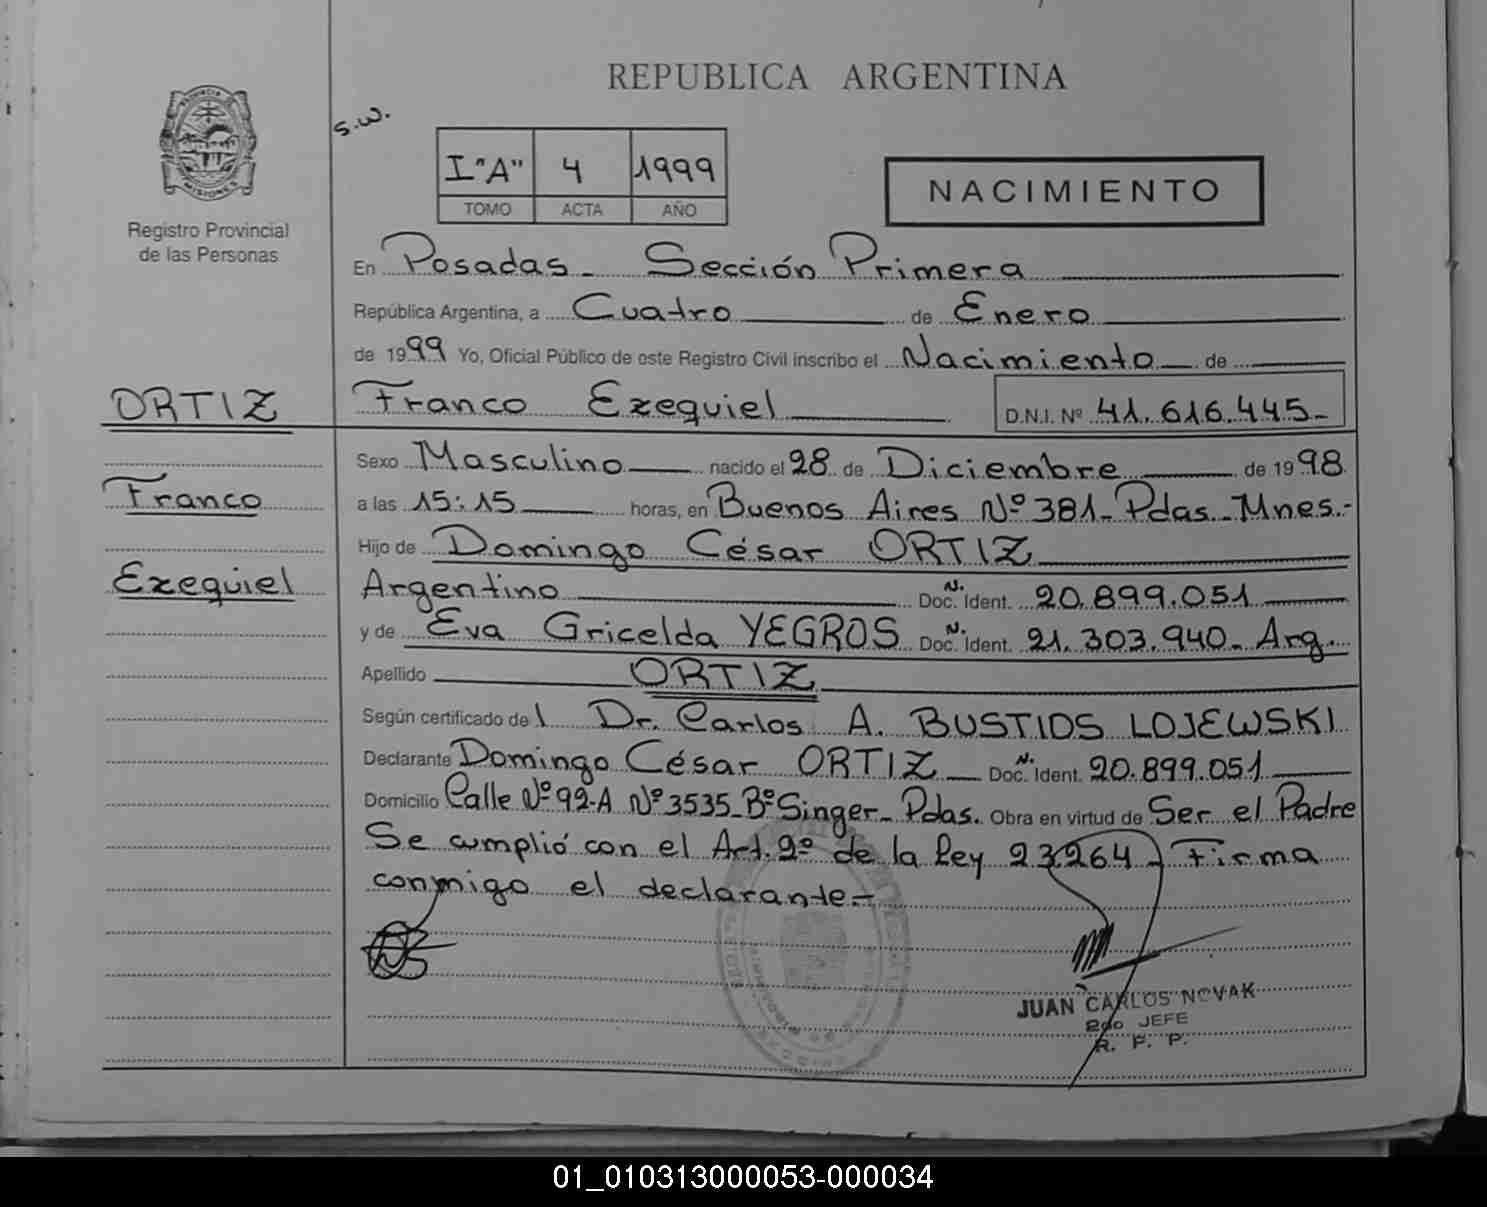 REPUBLICA ARGENTINA
S.W.
I "A" 4 1999
TOMO ACTA AÑO
NACIMIENTO
PROVINCIA DE
MISIONES
Registro Provincial
de las Personas
En Posadas - Sección Primera
República Argentina, a Cuatro de Enero
de 1999 Yo, Oficial Público de este Registro Civil inscribo el Nacimiento de
ORTIZ
Franco Ezequiel D.N.I. Nº 41.616.445-
Sexo Masculino nacido el 28 de Diciembre de 1998
Franco
a las 15:15 horas, en Buenos Aires Nº 381- Pdas. Mnes.-
Hijo de Domingo César ORTIZ
Ezequiel
Argentino Doc. N. Ident. 20.899.051
y de Eva Gricelda YEGROS Doc. N. Ident. 21.303.940- Arg.
Apellido ORTIZ
Según certificado del Dr. Carlos A. BUSTIOS LOJEWSKI
Declarante Domingo César ORTIZ Doc. N. Ident. 20.899.051
Domicilio Calle Nº 92-A Nº 3535- Bº Singer- Pdas. Obra en virtud de Ser el Padre
Se cumplió con el Art. 2º de la Ley 23264- Firma
conmigo el declarante.-
JUAN CARLOS NOVAK
2do JEFE
R. P. P.
01_010313000053-000034